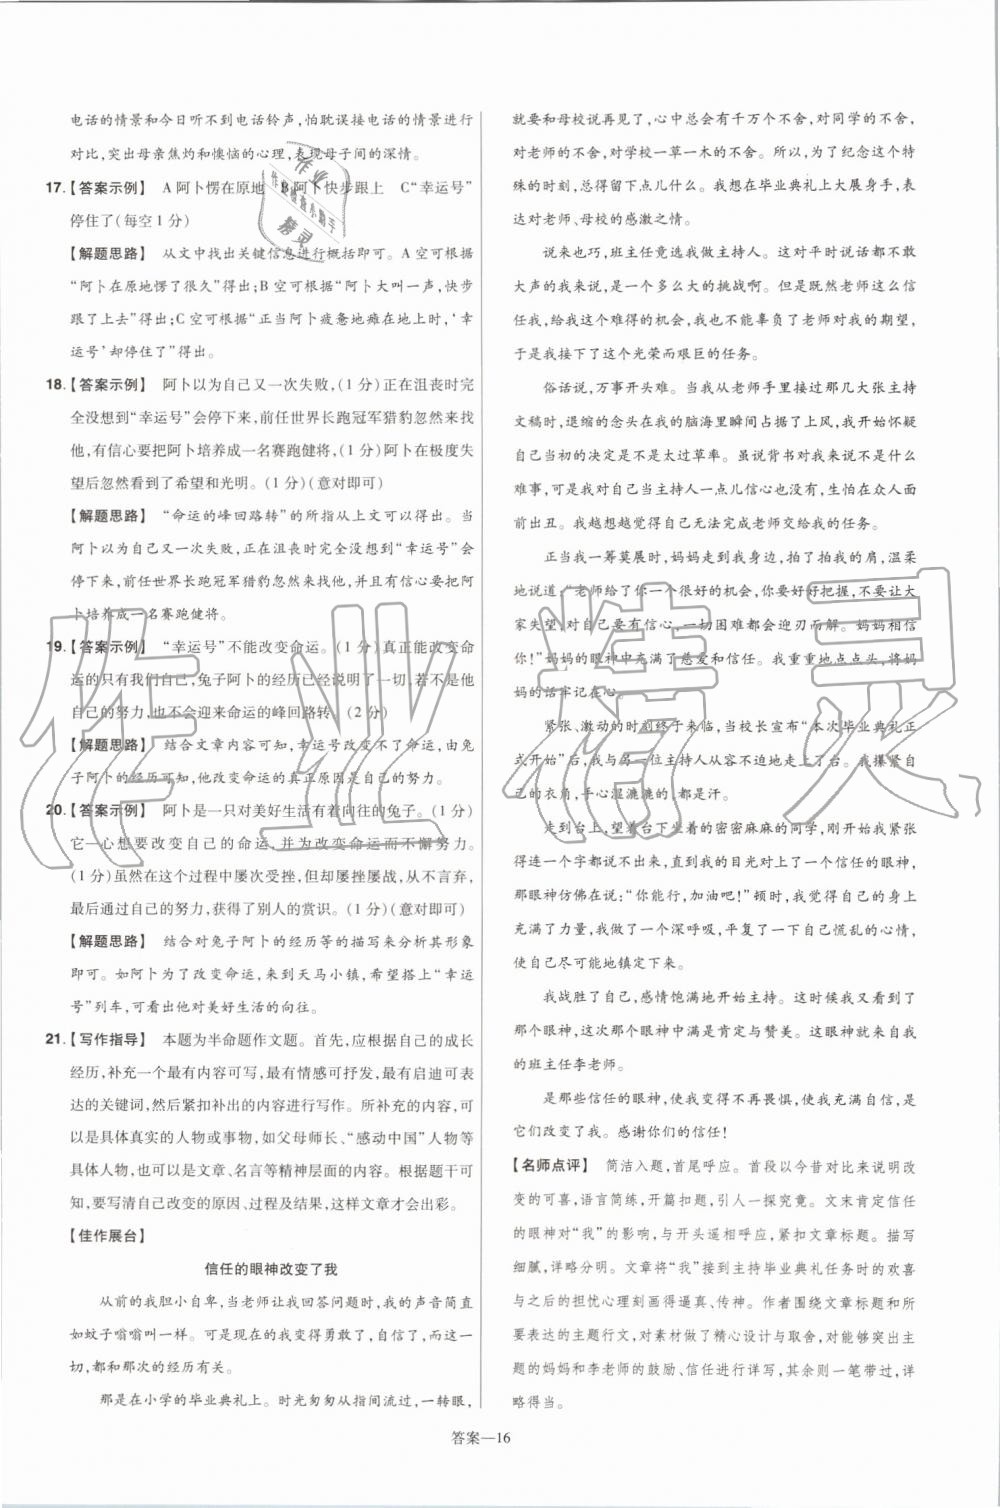 电话的情景和今日听不到电话铃声,怕耽误接电话的情景进行
对比,突出母亲焦灼和懊恼的心理,表现母子间的深情。
17.【答案示例】 A 阿卜愣在原地 B 阿卜快步跟上 C“幸运号”
停住了(每空1分)
【解题思路】 从文中找出关键信息进行概括即可。A 空可根据
“阿卜在原地愣了很久”得出;B 空可根据“阿卜大叫一声,快步
跟了上去”得出;C 空可根据“正当阿卜疲惫地瘫在地上时,‘幸
运号’却停住了”得出。
18.【答案示例】 阿卜以为自己又一次失败,(1分)正在沮丧时完
全没想到“幸运号”会停下来,前任世界长跑冠军猎豹忽然来找
他,有信心要把阿卜培养成一名赛跑健将。(1分)阿卜在极度失
望后忽然看到了希望和光明。(1分)(意对即可)
【解题思路】 “命运的峰回路转”的所指从上文可以得出。当
阿卜以为自己又一次失败,正在沮丧时完全没想到“幸运号”会
停下来,前任世界长跑冠军猎豹忽然来找他,并且有信心要把阿
卜培养成一名赛跑健将。
19.【答案示例】 “幸运号”不能改变命运。(1分)真正能改变命
运的只有我们自己,兔子阿卜的经历已经说明了一切,若不是他
自己的努力,也不会迎来命运的峰回路转。(2分)
【解题思路】 结合文章内容可知,幸运号改变不了命运,由兔
子阿卜的经历可知,他改变命运的真正原因是自己的努力。
20.【答案示例】 阿卜是一只对美好生活有着向往的兔子。(1分)
它一心想要改变自己的命运,并为改变命运而不懈努力。
(1分)虽然在这个过程中屡次受挫,但却屡挫屡战,从不言弃,
最后通过自己的努力,获得了别人的赏识。(1分)(意对即可)
【解题思路】 结合对兔子阿卜的经历等的描写来分析其形象
即可。如阿卜为了改变命运,来到天马小镇,希望搭上“幸运
号”列车,可看出他对美好生活的向往。
21.【写作指导】 本题为半命题作文题。首先,应根据自己的成长
经历,补充一个最有内容可写,最有情感可抒发,最有启迪可表
达的关键词,然后紧扣补出的内容进行写作。所补充的内容,可
以是具体真实的人物或事物,如父母师长、“感动中国”人物等
具体人物,也可以是文章、名言等精神层面的内容。根据题干可
知,要写清自己改变的原因、过程及结果,这样文章才会出彩。
【佳作展台】
信任的眼神改变了我
从前的我胆小自卑,当老师让我回答问题时,我的声音简直
如蚊子嗡嗡叫一样。可是现在的我变得勇敢了,自信了,而这一
切都和那次的经历有关。
那是在小学的毕业典礼上。时光匆匆从指间流过,一转眼,
就要和母校说再见了,心中总会有千万个不舍,对同学的不舍,
对老师的不舍,对学校一草一木的不舍。所以,为了纪念这个特
殊的时刻,总得留下点儿什么。我想在毕业典礼上大展身手,表
达对老师、母校的感激之情。
说来也巧,班主任竟选我做主持人。这对平时说话都不敢
大声的我来说,是一个多么大的挑战啊。但是既然老师这么信
任我,给我这个难得的机会,我也不能辜负了老师对我的期望,
于是我接下了这个光荣而艰巨的任务。
俗话说,万事开头难。当我从老师手里接过那几大张主持
文稿时,退缩的念头在我的脑海里瞬间占据了上风,我开始怀疑
自己当初的决定是不是太过草率。虽说背书对我来说不是什么
难事,可是我对自己当主持人一点儿信心也没有,生怕在众人面
前出丑。我越想越觉得自己无法完成老师交给我的任务。
正当我一筹莫展时,妈妈走到我身边,拍了拍我的肩,温柔
地说道:“老师给了你一个很好的机会,你要好好把握,不要让大
家失望,对自己要有信心,一切困难都会迎刃而解。妈妈相信
你!”妈妈的眼神中充满了慈爱和信任。我重重地点点头,将妈
妈的话牢记在心。
紧张、激动的时刻终于来临,当校长宣布“本次毕业典礼正
式开始”后,我与另一位主持人从容不迫地走上了台。我攥紧自
己的衣角,手心湿漉漉的,都是汗。
走到台上,望着台下坐着的密密麻麻的同学,刚开始我紧张
得连一个字都说不出来,直到我的目光对上一个信任的眼神,
那眼神仿佛在说:“你能行,加油吧!”顿时,我觉得自己的身上
充满了力量,我做了一个深呼吸,平复了一下自己慌乱的心情,
使自己尽可能地镇定下来。
我战胜了自己,感情饱满地开始主持。这时候我又看到了
那个眼神,这次那个眼神中满是肯定与赞美。这眼神就来自我
的班主任李老师。
是那些信任的眼神,使我变得不再畏惧,使我充满自信,是
它们改变了我。感谢你们的信任!
【名师点评】 简洁入题,首尾呼应。首段以今昔对比来说明改
变的可喜,语言简练,开篇扣题,引人一探究竟。文末肯定信任
的眼神对“我”的影响,与开头遥相呼应,紧扣文章标题。描写
细腻,详略分明。文章将“我”接到主持毕业典礼任务时的欢喜
与之后的担忧心理刻画得逼真、传神。作者围绕文章标题和所
要表达的主题行文,对素材做了精心设计与取舍,对能够突出主
题的妈妈和李老师的鼓励、信任进行详写,其余则一笔带过,详
略得当。
答案—16
作业精灵